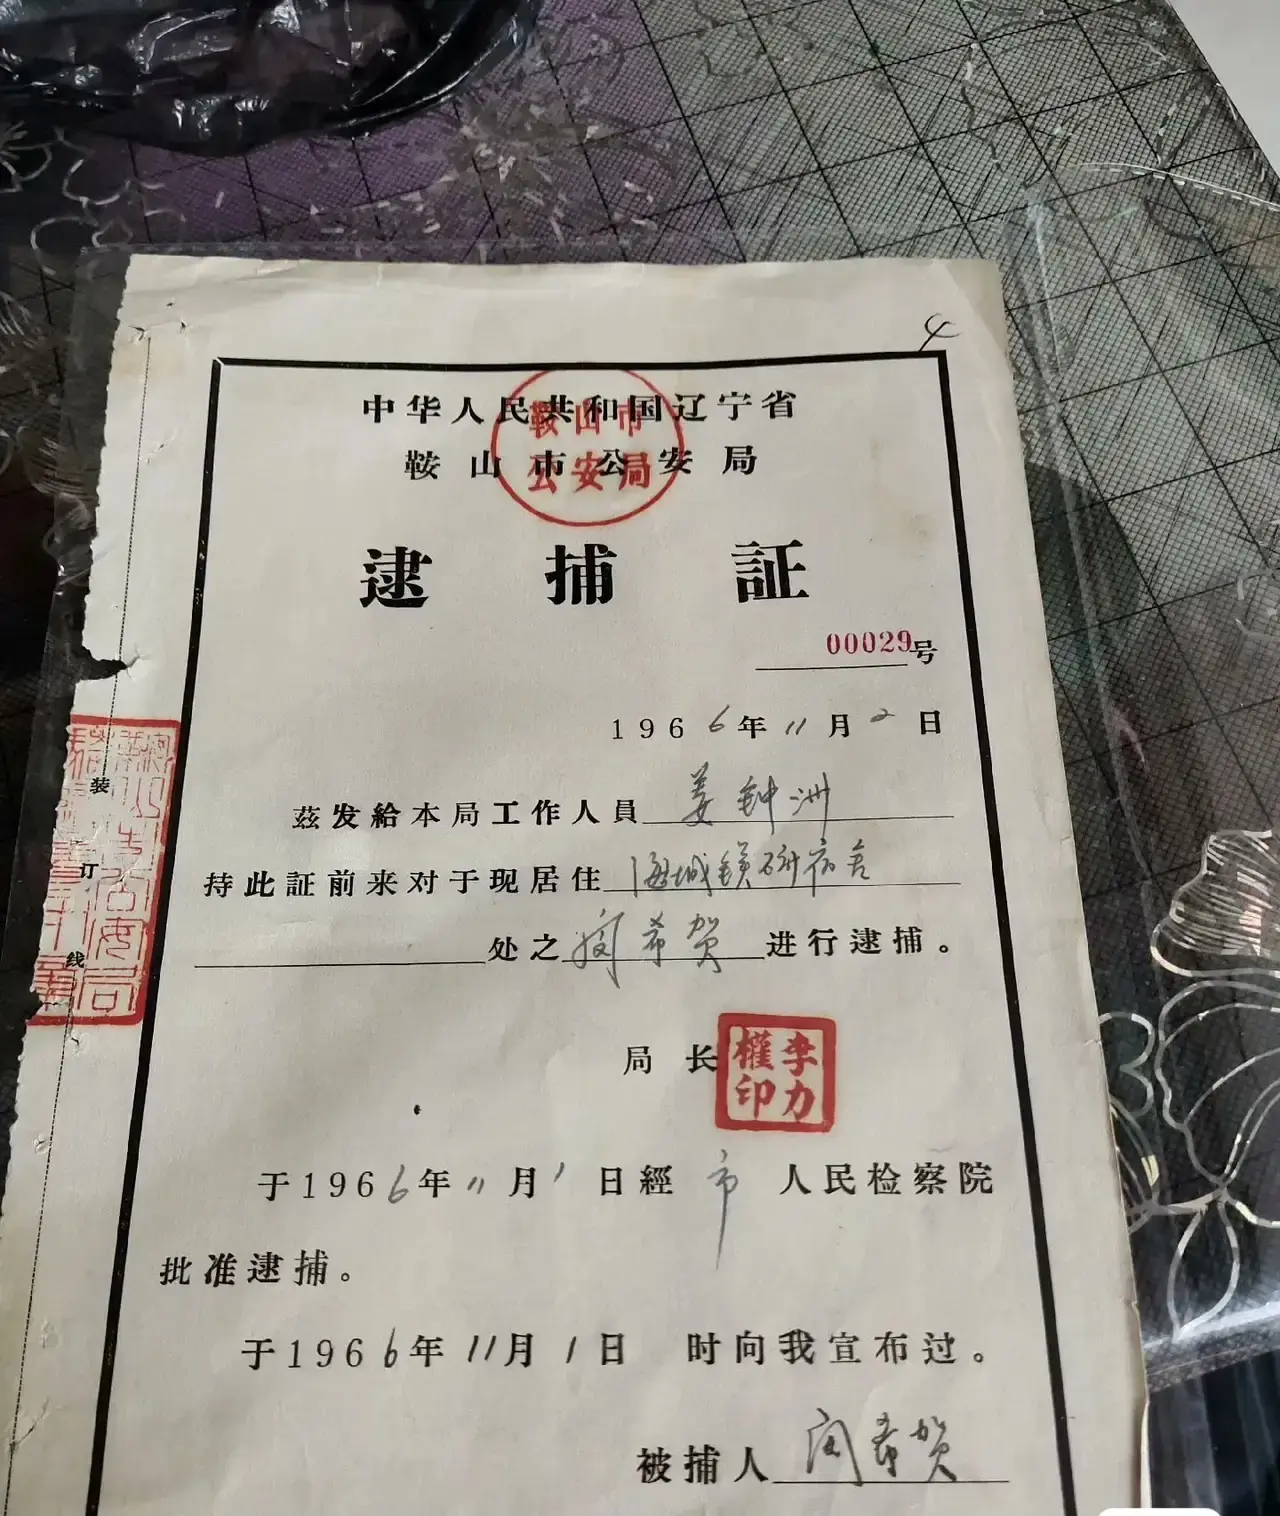 4
中华人民共和国辽宁省
鞍山市公安局
鞍山市
公安局
逮捕証
00029号
1966年11月2日
茲发給本局工作人員姜钟洲
持此証前来对于现居住海城镁矿宿舍
处之闵希贺进行逮捕。
装
订
线
局长
李力
權印
于1966年11月1日經市人民检察院
批准逮捕。
于1966年11月1日 时向我宣布过。
被捕人闵希贺